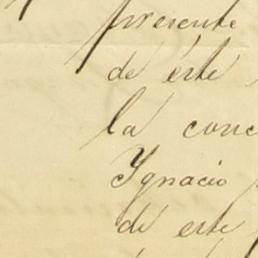 presente
de éste
la conc
Ygnacio
de este